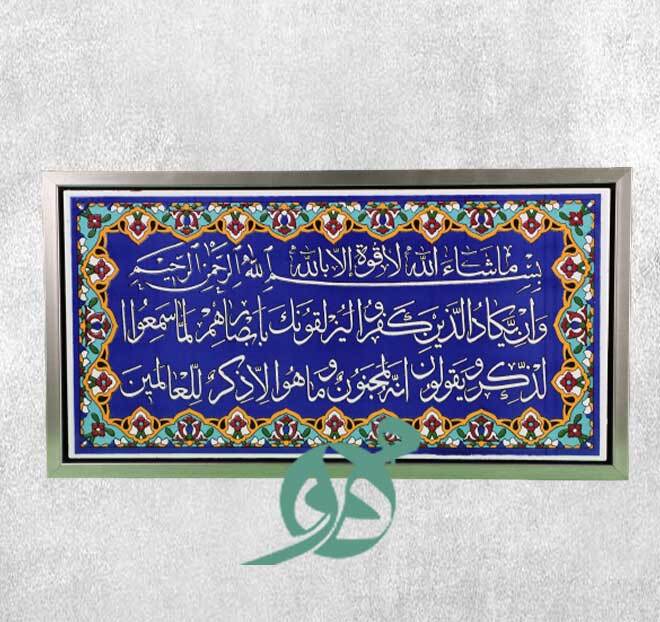 بِسْمِ اللهِ الرَّحْمٰنِ الرَّحِيمِ
مَا شَاءَ اللهُ لَا قُوَّةَ إِلَّا بِاللهِ
وَاِنْ يَكَادُ الَّذِينَ كَفَرُوا لَيُزْلِقُونَكَ بِاَبْصَارِهِمْ لَمَّا سَمِعُوا
الذِّكْرَ وَيَقُولُونَ اِنَّهُ لَمَجْنُونٌ وَمَا هُوَ اِلَّا ذِكْرٌ لِلْعَالَمِينَ